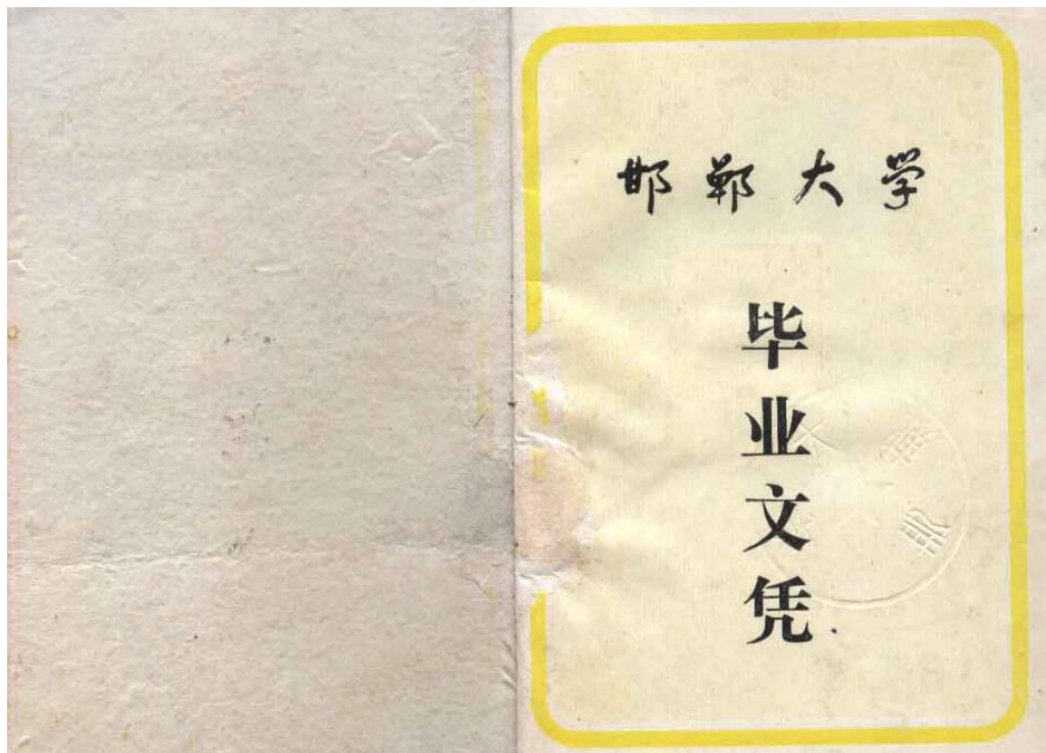 邯郸大学
毕业文凭